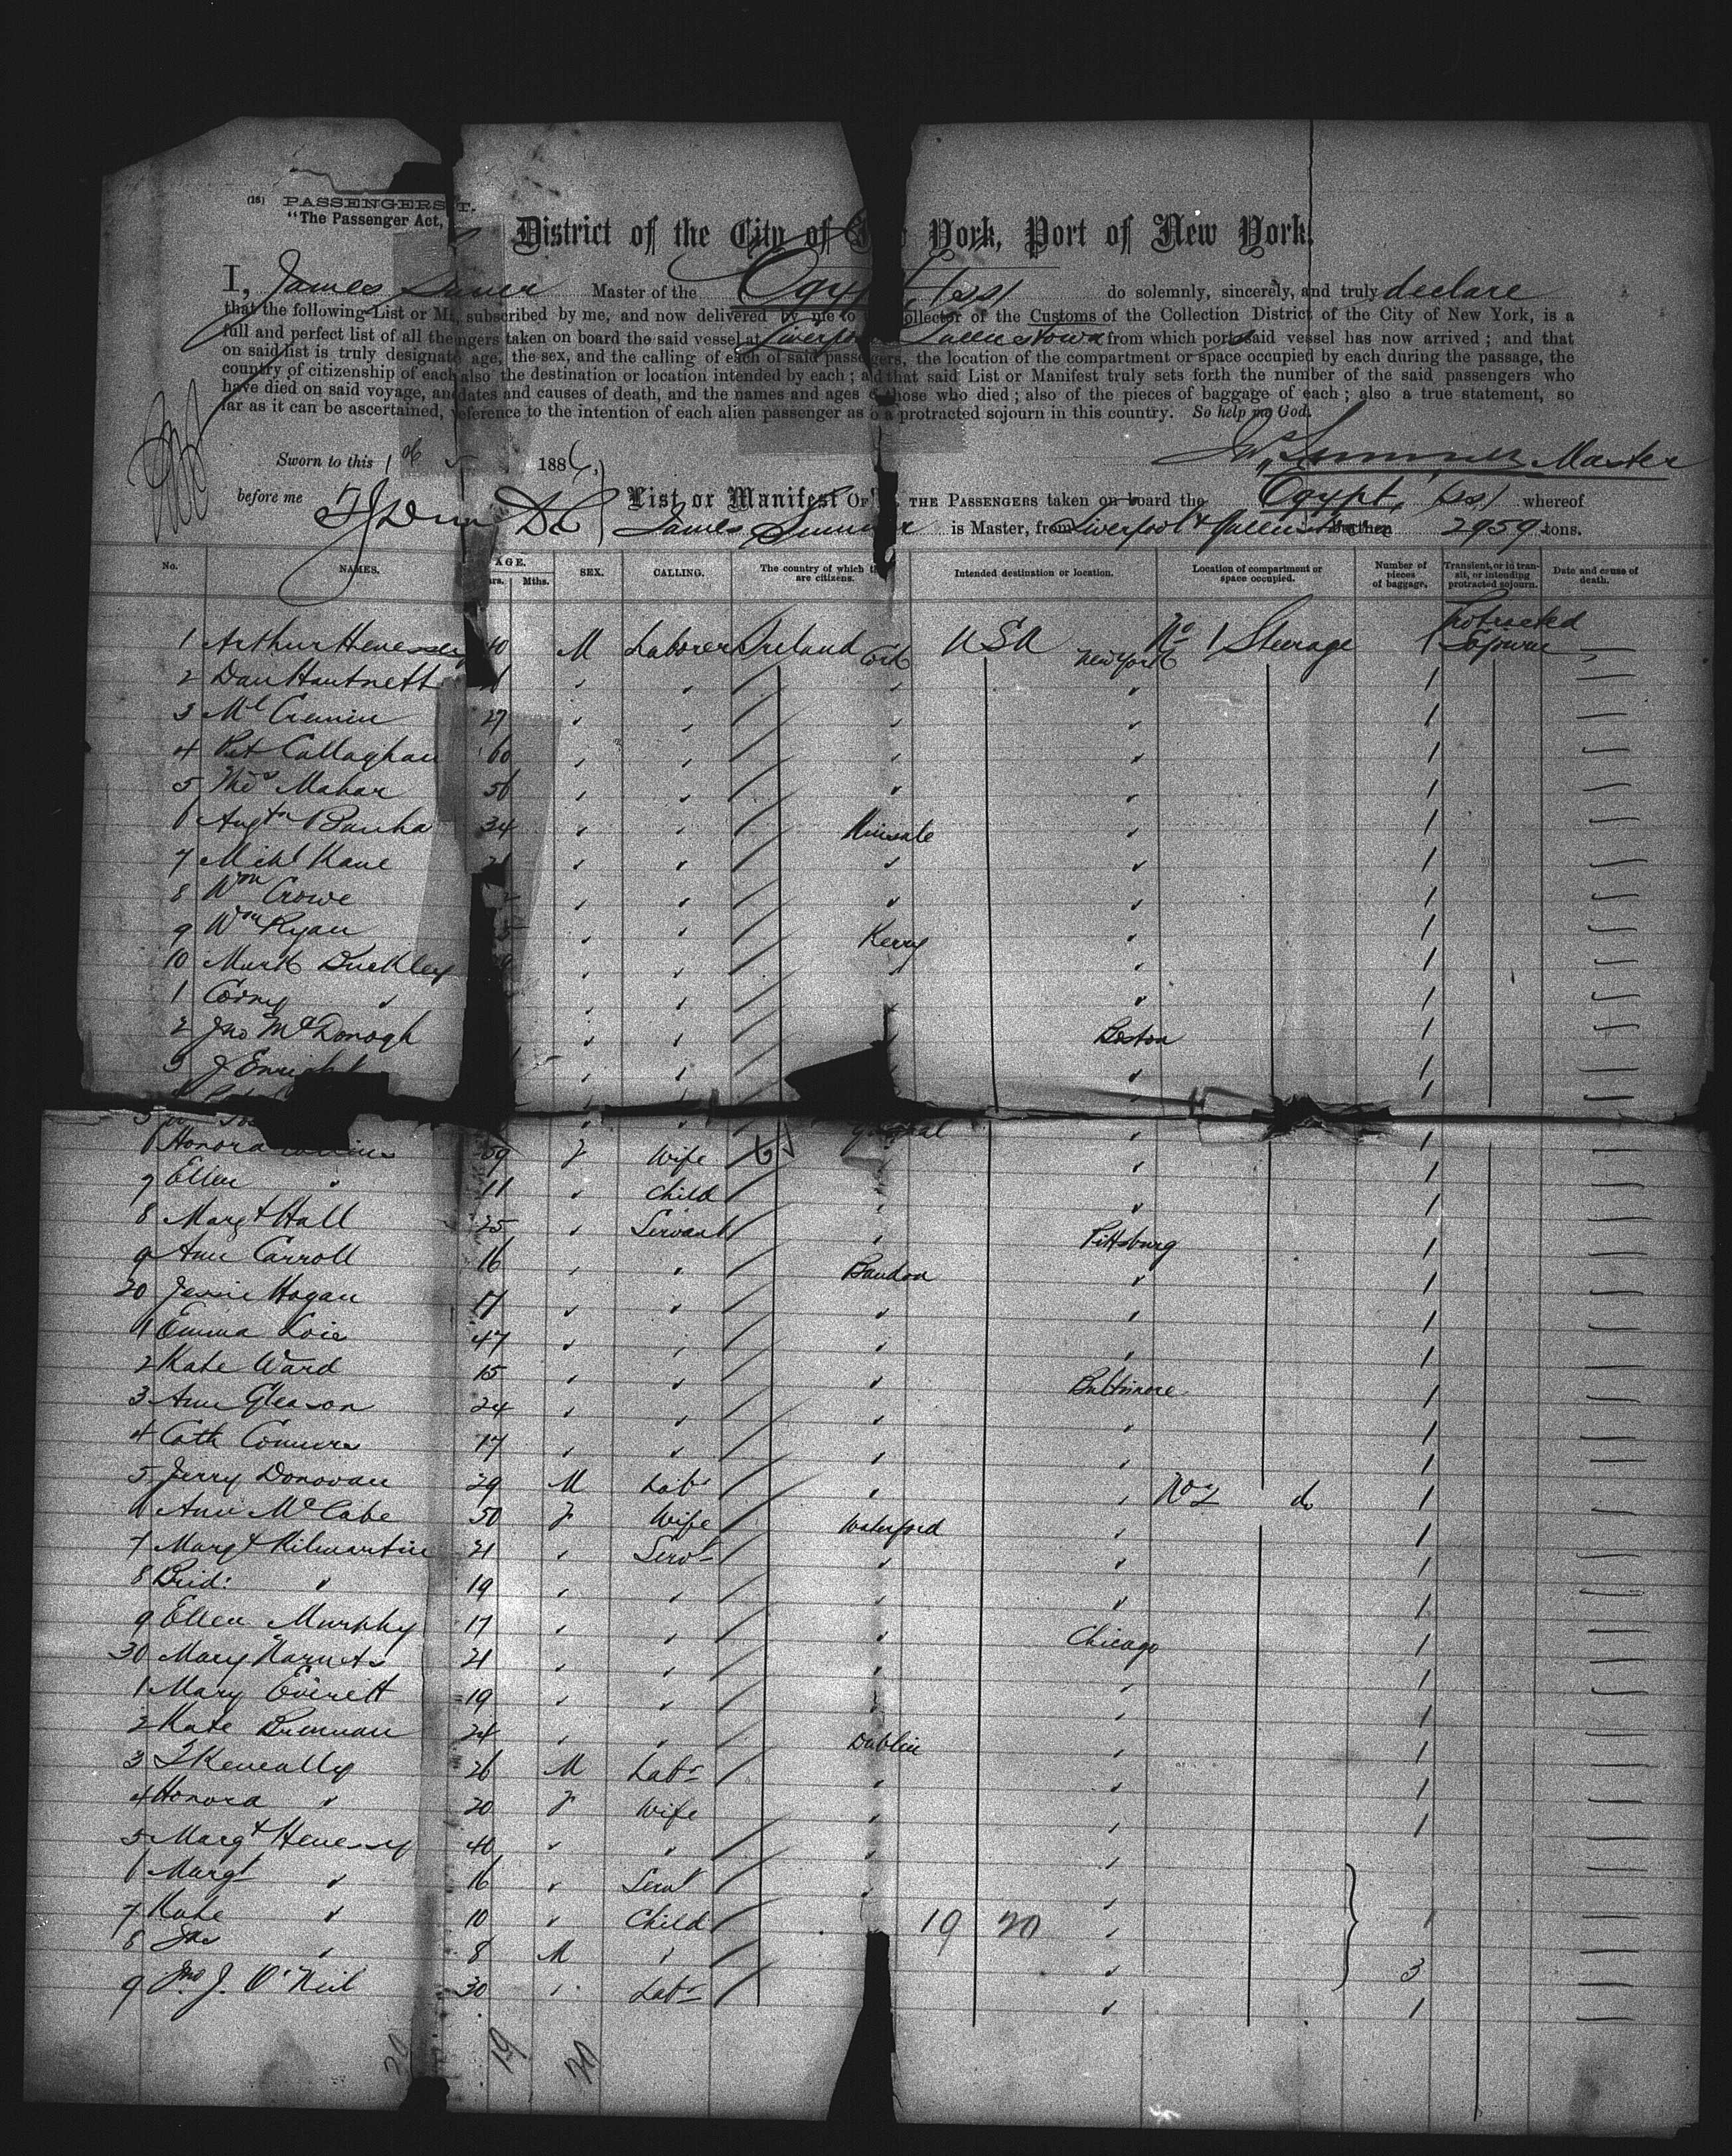 (18) PASSENGERS T.
"The Passenger Act,
District of the City of York, Port of New York.
I, James Master of the Egypt (ss) do solemnly, sincerely, and truly declare
that the following List or subscribed by me, and now delivered by me to ollector of the Customs of the Collection District of the City of New York, is a
full and perfect list of all the ngers taken on board the said vessel at Liverpool Queenstown from which ports said vessel has now arrived ; and that
on said list is truly designate age, the sex, and the calling of each of said passengers, the location of the compartment or space occupied by each during the passage, the
country of citizenship of each also the destination or location intended by each ; a d that said List or Manifest truly sets forth the number of the said passengers who
have died on said voyage, an dates and causes of death, and the names and ages those who died ; also of the pieces of baggage of each ; also a true statement, so
far as it can be ascertained, eference to the intention of each alien passenger as o a protracted sojourn in this country. So help me God.
Jas. Sumner Master
Sworn to this 1 1886,
before me
List or Manifest OF THE PASSENGERS taken on board the Egypt, (ss) whereof
James Sumner is Master, from Liverpool & Queenstown burthen 2959 tons.
No. NAMES. AGE. rs. Mths. SEX. CALLING. The country of which t are citizens. Intended destination or location. Location of compartment or space occupied. Number of pieces of baggage. Transient, or in transit, or intending protracted sojourn. Date and cause of death.
1 Arthur Henessey 40 M Laborer Ireland Cork USA New York No 1 Steerage 1 Protracted Sojourn —
2 Dan Hautnett " " " " 1 —
3 Ml Cremin 27 " " " " 1 —
4 Pat Callaghan 60 " " " " 1 —
5 Thos Mahar 56 " " " " 1 —
6 Augta Banha 34 " " Kinsale " 1 —
7 Michl Kane " " " " 1 —
8 Wm Crowe " " " " 1 —
9 Wm Ryan " " Kerry " 1 —
10 Mark Buckley " " " " 1 —
1 Corny " " " " " 1 —
2 Jno McDonogh " " Boston 1 —
3 J Enright " " " 1 —
6 Honora 39 F Wife " 1 —
7 Ellen " 11 " Child " " 1 —
8 Margt Hall 25 " Servant " Pittsburg 1 —
9 Ann Carroll 16 " " Bandon " 1 —
20 Jessie Hogan 17 " " " " 1 —
1 Emma 47 " " " " 1 —
2 Kate Ward 15 " " " Baltimore 1 —
3 Ann Gleason 24 " " " " 1 —
4 Cath Conners 17 " " " " 1 —
5 Jerry Donovan 29 M Labr " " No 2 do 1 —
6 Ann McCabe 50 F Wife Waterford " 1 —
7 Margt Kilmartin 21 " Servt " " 1 —
8 Brid: " 19 " " " 1 —
9 Ellen Murphy 17 " " " Chicago 1 —
30 Mary 21 " " " " 1 —
1 Mary Everett 19 " " " " 1 —
2 Kate Brennan 24 " " Dublin " 1 —
3 T Keneally 26 M Labr " " 1 —
4 Honora " 20 F Wife " " 1 —
5 Margt Henessy 40 " " " " —
6 Margt " 16 " Servt " " —
7 Kate " 10 " Child 19 20 " 1 —
8 Jas " 8 M " " 3 —
9 Jno. J. O'Neil 30 " Labr " 1 —
20 19 20